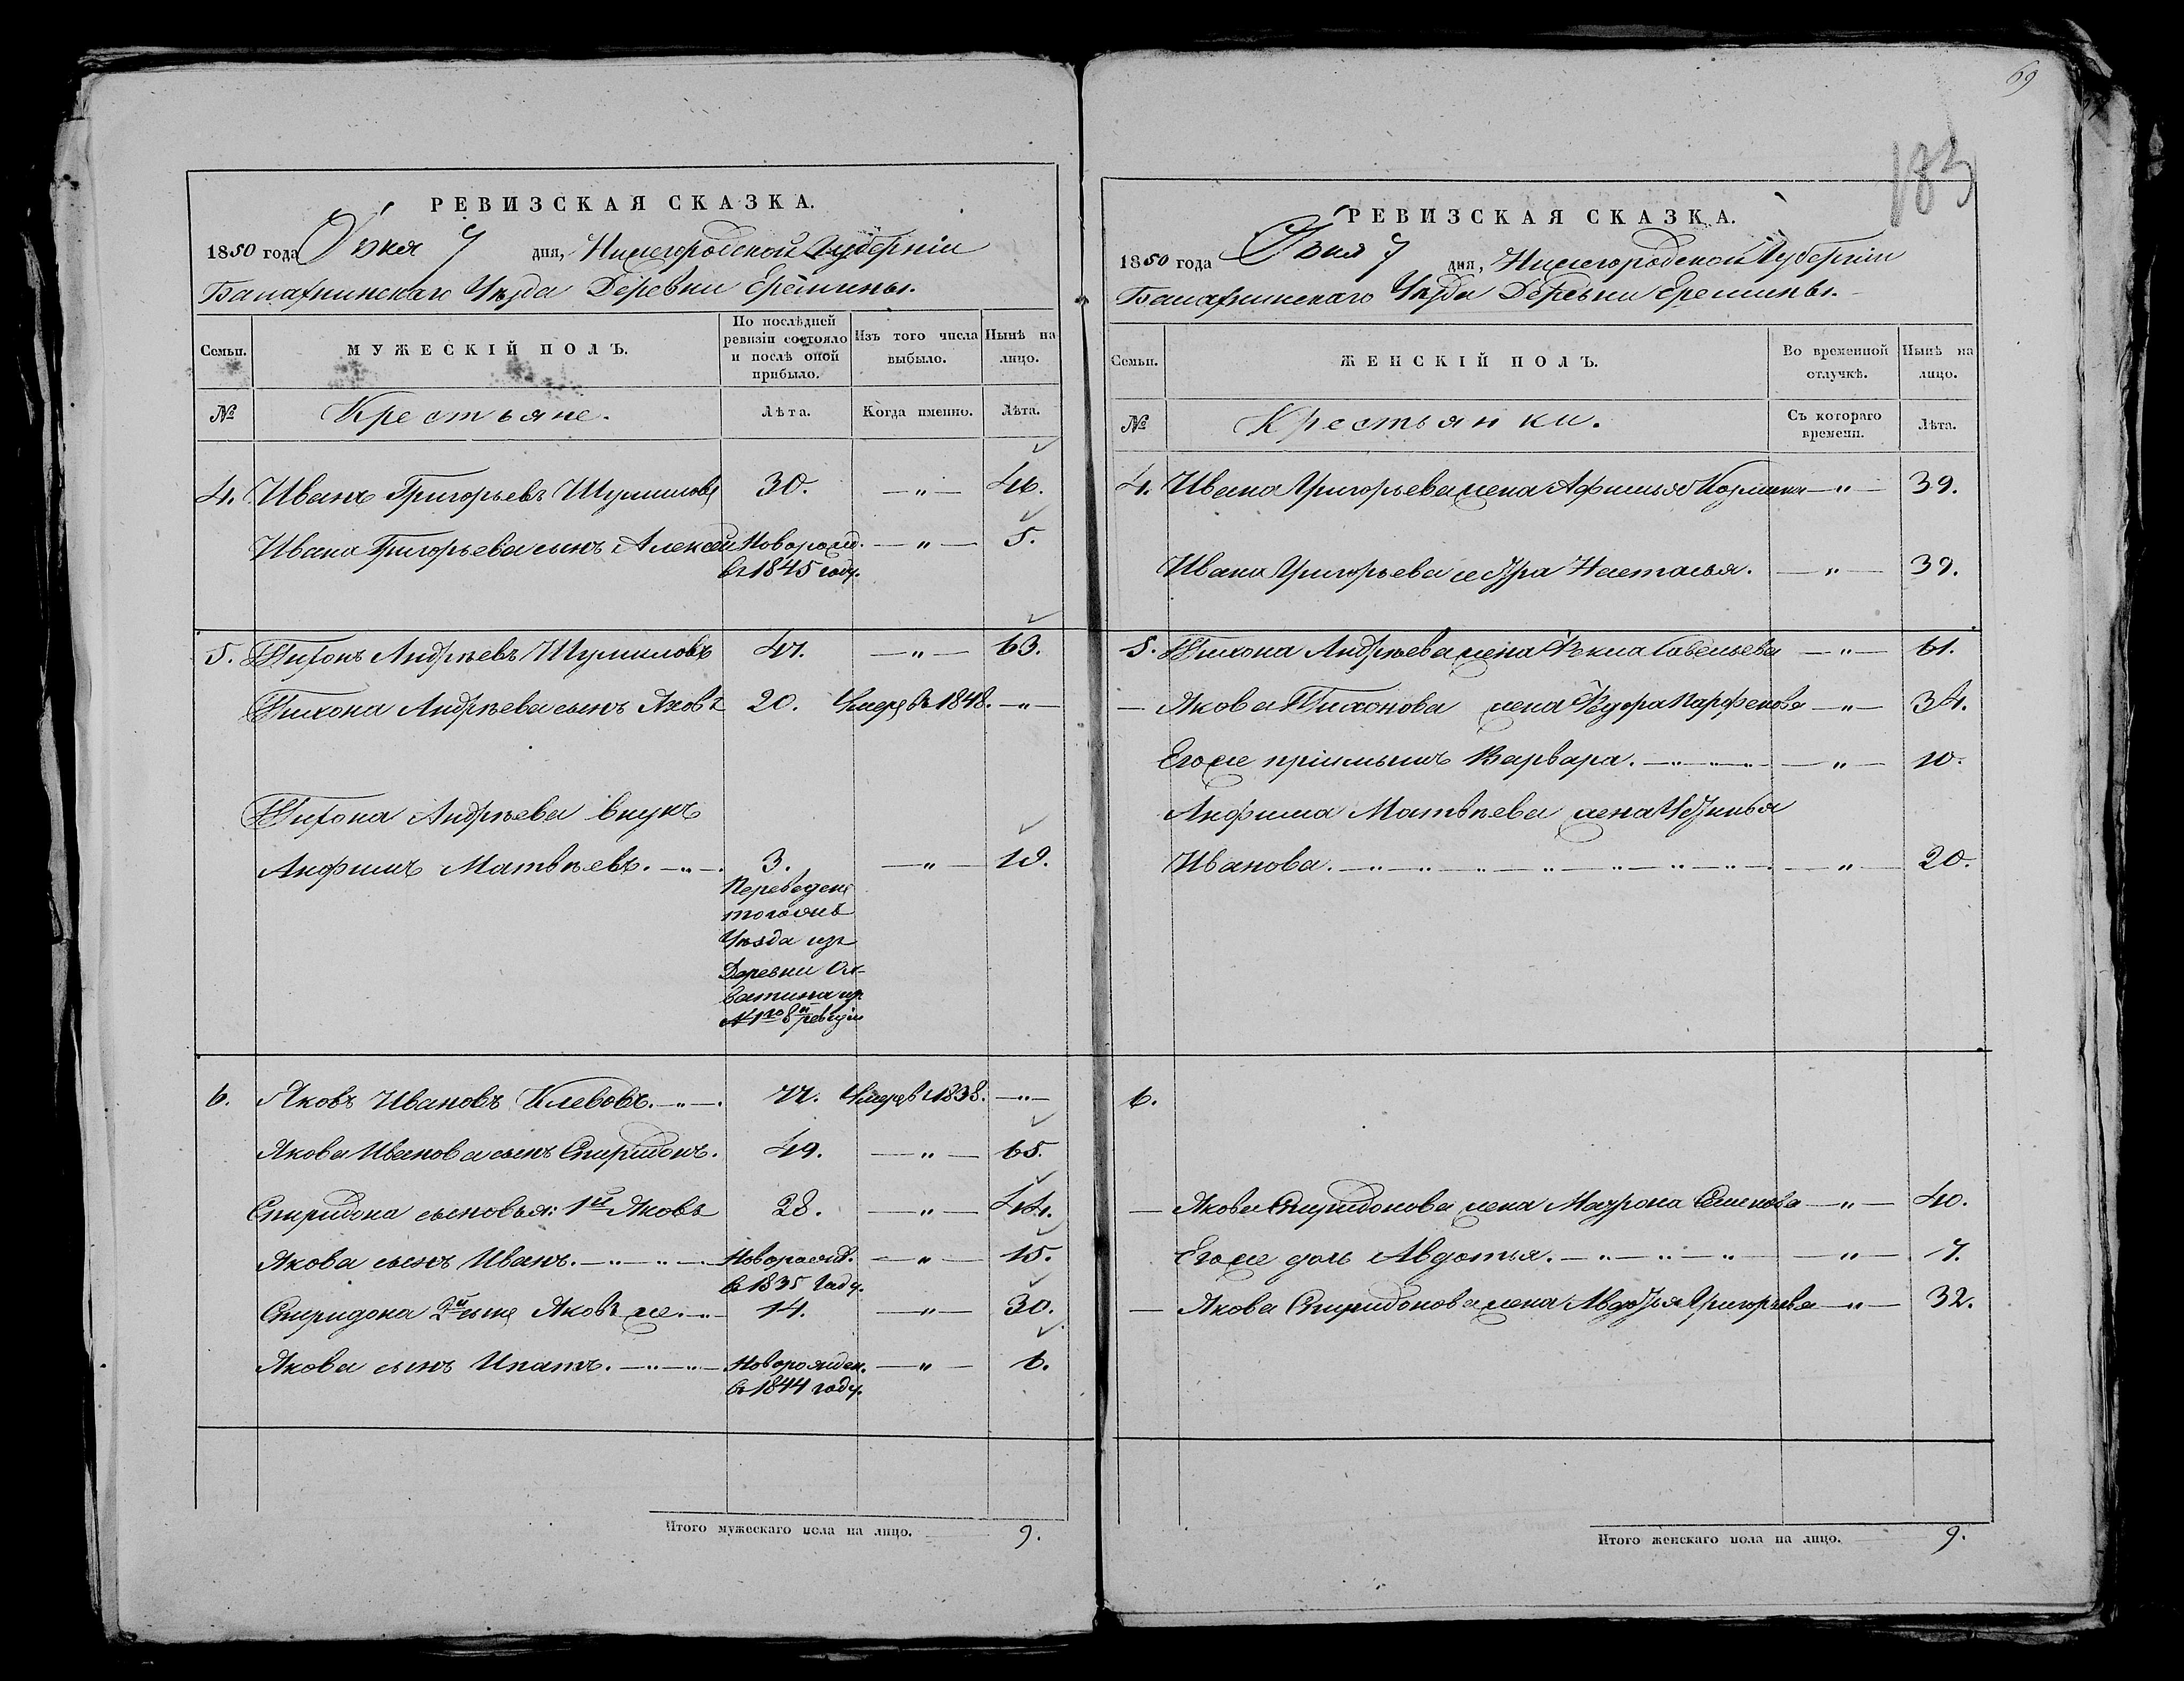 РЕВИЗСКАЯ СКАЗКА.
1850 года 7 дня, Нижегородской Губерніи
Балахнинскаго Уѣзда Деревни Еремины.
Семьи.
МУЖЕСКІЙ ПОЛЪ.
По послѣдней ревизіи состояло и послѣ оной прибыло.
Изъ того числа выбыло.
Нынѣ на лицо.
№
Крестьяне.
Лѣта.
Когда именно.
Лѣта.
4. Иванъ Григорьевъ Шумиловъ 30. —„— 46.
Ивана Григорьева сынъ Алексей Поворожд. —„— 5.
въ 1845 году.
5. Тихонъ Андрѣевъ Шумиловъ 47. —„— 63.
Тихона Андрѣева сынъ Яковъ 20. Умеръ въ 1848. —„—
Тихона Андрѣева внукъ
Анфимъ Матвѣевъ. —„—. 3. —„— 19.
Переведенъ
тогоже
Уѣзда изъ
Деревни
№ 1го 8й ревизіи
6. Яковъ Ивановъ Клевовъ. —„—. 77. Умеръ въ 1838. —„—
Якова Иванова сынъ Спиридонъ. 49. —„— 65.
Спиридона сыновья: 1й Яковъ 28. —„— 44.
Якова сынъ Иванъ. —„—„— Новорожд. —„— 15.
въ 1835 году.
Спиридона 2й сынъ Яковъ же. —„— 14. —„— 30.
Якова сынъ Ипатъ. —„—„— Новорожден. —„— 6.
въ 1844 году.
Итого мужескаго пола на лицо. 9.
69
183
РЕВИЗСКАЯ СКАЗКА.
1850 года 7 дня, Нижегородской Губерніи
Балахнинскаго Уѣзда Деревни Еремины.
Семьи.
ЖЕНСКІЙ ПОЛЪ.
Во временной отлучкѣ.
Нынѣ на лицо.
№
Крестьянки.
Съ котораго времени.
Лѣта.
4. Ивана Григорьева жена Афимья —„— 39.
Ивана Григорьева сестра Настасья. —„— 39.
5. Тихона Андрѣева жена Савельева —„— 61.
— Якова Тихонова жена Парфенова —„— 34.
Егоже пріимышъ Варвара. —„—„— —„— 10.
Анфима Матвѣева жена Устинья
Иванова. —„—„—„—„—„— —„— 20.
6.
— Якова Спиридонова жена Матрона Семенова —„— 40.
Егоже дочь Авдотья. —„—„—„— —„— 7.
— Якова Спиридонова жена Авдотья Григорьева —„— 32.
Итого женскаго пола на лицо. 9.